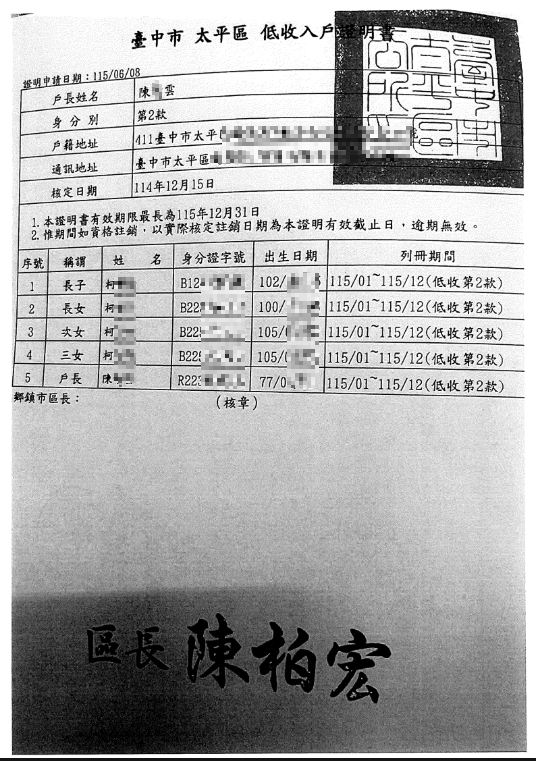 臺中市 太平區 低收入戶證明書
證明申請日期：115/06/08
戶長姓名 陳 雲
身分別 第2款
戶籍地址 411臺中市太平
通訊地址 臺中市太平區
核定日期 114年12月15日
1.本證明書有效期限最長為115年12月31日
2.惟期間如資格註銷，以實際核定註銷日期為本證明有效截止日，逾期無效。
序號 稱謂 姓 名 身分證字號 出生日期 列冊期間
1 長子 柯 B12 102/ 115/01~115/12(低收第2款)
2 長女 柯 B22 100/ 115/01~115/12(低收第2款)
3 次女 柯 B22 105/0 115/01~115/12(低收第2款)
4 三女 柯 B22 105/ 115/01~115/12(低收第2款)
5 戶長 陳 R223 77/0 115/01~115/12(低收第2款)
鄉鎮市區長： (核章)
區長 陳柏宏